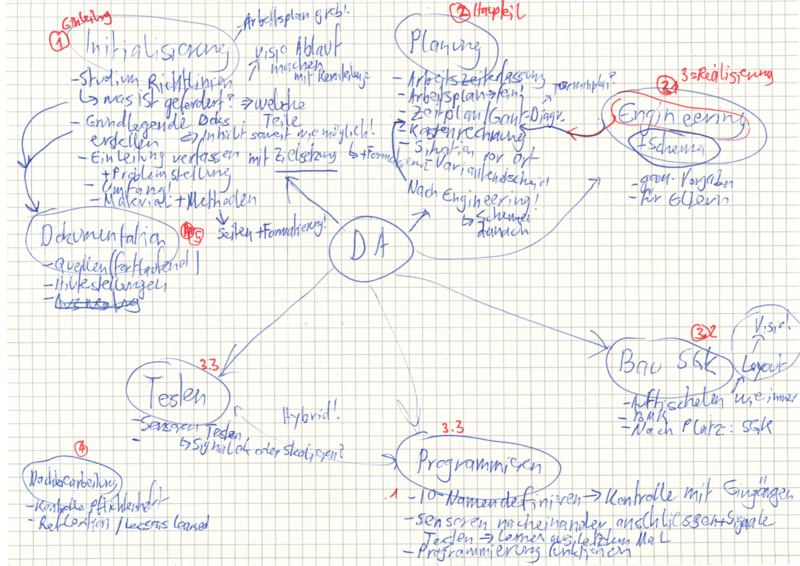 Einleitung
1
Initialisierung
- Arbeitsplan grob!
Visio Ablauf
machen
mit
- Studium Richtlinien
↳ was ist gefordert? ⇒ welche
Teile
- Grundlegende Doks
erstellen ⇒ Inhalt soweit wie möglich!
- Einleitung verfassen mit Zielsetzung
+ Problemstellung
- Umfang!
- Material + Methoden
↳ Seiten + Formatierung!
2 Hauptteil
Planung
- Arbeitszeiterfassung
- Arbeitsplan
- Zeitplan/Gant-Diagr.
- Kostenrechnung
- Situation vor Ort
Nach Engineering!
↳ Schema
danach
3 = Realisierung
Engineering
+ Schema
- gem. Vorgaben
- für
Dokumentation
5
- Quellen (fortlaufend)
- Hilfestellungen
DA
3.3
Testen
- Sensoren Testen
↳ Signal ok oder Skalieren?
Hybrid!
3.2
Bau SGK
Visio!
Layout
- Aufschalten wie immer
- BMK
- Nach Platz: SGK
4
Nachbearbeitung
- Kontrolle Pflichtenheft
- Reflektion / Lessons learned
3.3
Programmieren
1
- IO-Namen definieren → Kontrolle mit Eingängen
- Sensoren nacheinander anschliessen + Signale
Testen → Lernen aus letztem Mal
- Programmierung Funktionen